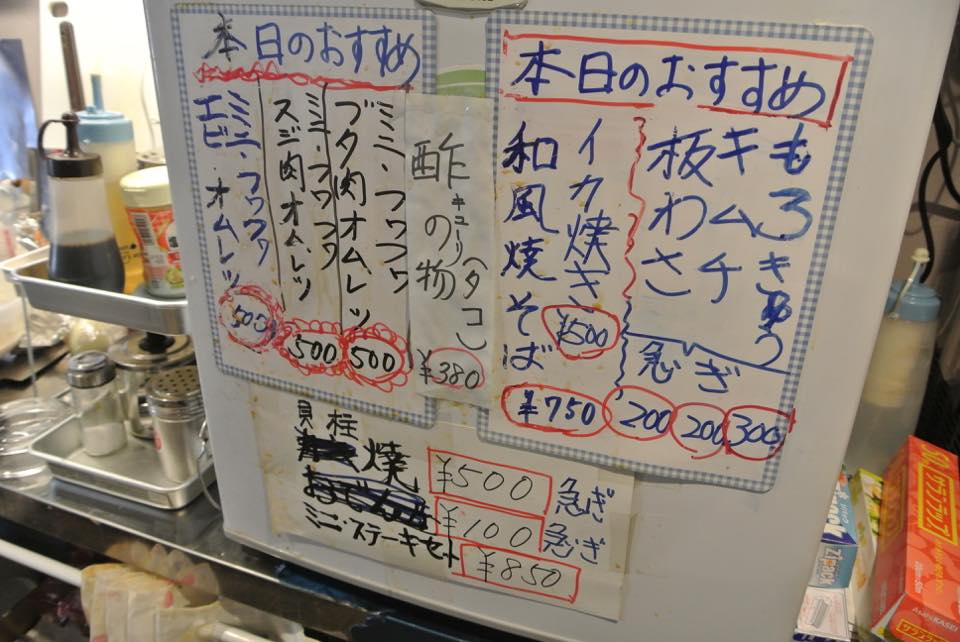 本日のおすすめ
もろきゅう
キムチ
板わさ
急ぎ
300
200
200
イカ焼き
¥500
和風焼そば
¥750
酢の物
キューリ(タコ)
¥380
本日のおすすめ
ミニ・フワフワ
ブタ肉オムレツ
500
ミニ・フワフワ
スジ肉オムレツ
500
ミニ・フワフワ
エビ・オムレツ
500
貝柱
焼 ¥500 急ぎ
¥100 急ぎ
ミニ・ステーキセット ¥850
Ziploc
サランラップ
AsahiKASEI